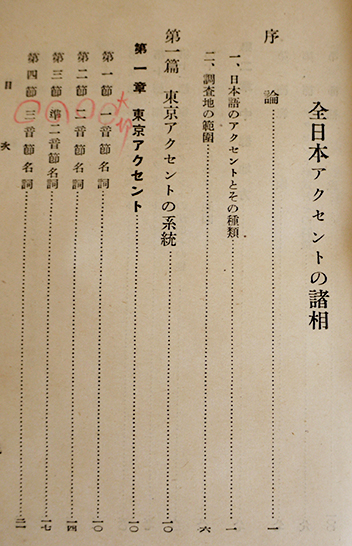 全日本アクセントの諸相
序論……一
一、日本語のアクセントとその種類……一
二、調査地の範囲……六
第一篇 東京アクセントの系統……一〇
第一章 東京アクセント……一〇
第一節 一音節名詞……一〇
第二節 二音節名詞……一四
第三節 準二音節名詞……一七
第四節 三音節名詞……二一
目次